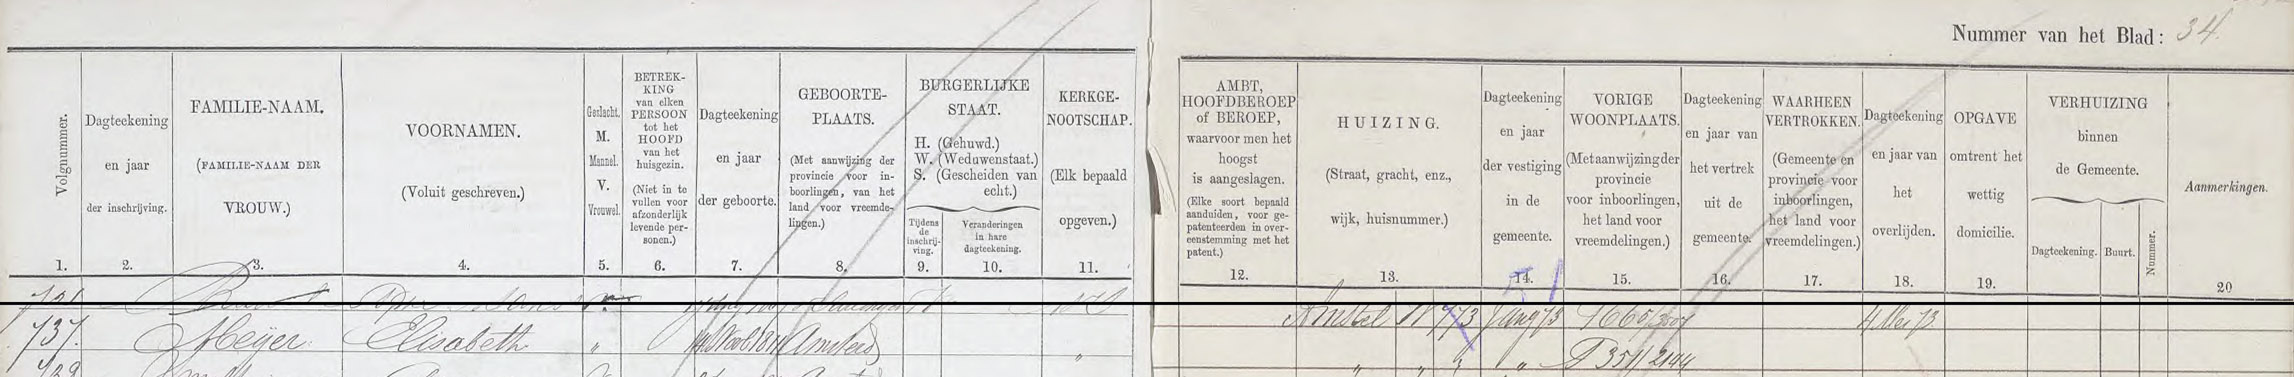 Nummer van het Blad: 34.
Volgnummer.
1.
Dagteekening
en jaar
der inschrijving.
2.
FAMILIE-NAAM.
(FAMILIE-NAAM DER
VROUW.)
3.
VOORNAMEN.
(Voluit geschreven.)
4.
Geslacht.
M.
Mannel.
V.
Vrouwel.
5.
BETREK-
KING
van elken
PERSOON
tot het
HOOFD
van het
huisgezin.
(Niet in te
vullen voor
afzonderlijk
levende per-
sonen.)
6.
Dagteekening
en jaar
der geboorte.
7.
GEBOORTE-
PLAATS.
(Met aanwijzing der
provincie voor in-
boorlingen, van het
land voor vreemde-
lingen.)
8.
BURGERLIJKE
STAAT.
H. (Gehuwd.)
W. (Weduwenstaat.)
S. (Gescheiden van
echt.)
Tijdens
de
inschrij-
ving.
9.
Veranderingen
in hare
dagteekening.
10.
KERKGE-
NOOTSCHAP.
(Elk bepaald
opgeven.)
11.
AMBT,
HOOFDBEROEP
of BEROEP,
waarvoor men het
hoogst
is aangeslagen.
(Elke soort bepaald
aanduiden, voor ge-
patenteerden in over-
eenstemming met het
patent.)
12.
HUIZING.
(Straat, gracht, enz.,
wijk, huisnummer.)
13.
Dagteekening
en jaar
der vestiging
in de
gemeente.
14.
VORIGE
WOONPLAATS.
(Met aanwijzing der
provincie
voor inboorlingen,
het land voor
vreemdelingen.)
15.
Dagteekening
en jaar van
het vertrek
uit de
gemeente.
16.
WAARHEEN
VERTROKKEN.
(Gemeente en
provincie voor
inboorlingen,
het land voor
vreemdelingen.)
17.
Dagteekening
en jaar van
het
overlijden.
18.
OPGAVE
omtrent het
wettig
domicilie.
19.
VERHUIZING
binnen
de Gemeente.
Dagteekening.
Buurt.
Nummer.
Aanmerkingen.
20
737. Meijer Elisabeth " Amsterd "
Amstel